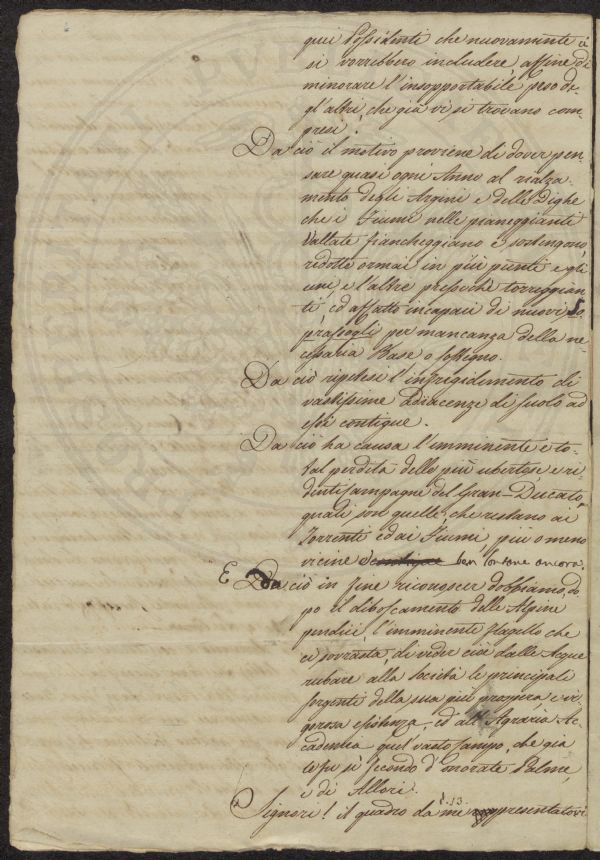 quei Possidenti che nuovamente vi
si vorrebbero includere, affine di
minorare l'insopportabile peso de-
gl'altri, che già vi si trovano com-
presi.
Da ciò il motivo proviene di dover pen-
sare quasi ogni Anno al rialza-
mento degli Argini e delle Dighe
che i Fiumi nelle pianeggianti
Vallate fiancheggiano e sostengono,
ridotte ormai in più punti e gli
uni, e l'altre pressoché torreggian-
ti, ed affatto incapaci di nuovi so-
prassogli per mancanza della ne-
cessaria Base o sostegno.
Da ciò ripetesi l'infrigidimento di
vastissime adiacenze di suolo ad
essi contigue.
Da ciò ha causa l'imminente e to-
tal perdita delle più ubertose, e ri-
denti Campagne del Gran-Ducato,
quali son quelle, che restano ai
Torrenti ed ai Fiumi più o meno
vicine ben lontane ancora.
E da ciò in fine riconoscer dobbiamo, do-
po il diboscamento delle Alpine
pendici, l'imminente flagello che
ci sovrasta, di veder cioè dalle Acque
rubare alla Società le principali
sorgenti della sua più prospera, e vi-
gorosa esistenza, ed all'Agraria Ac-
cademia quel vasto Campo, che già
le fu sì fecondo d'onorate Palme,
e di Allori.
§. 13.
Signori! il quadro da me presentatovi